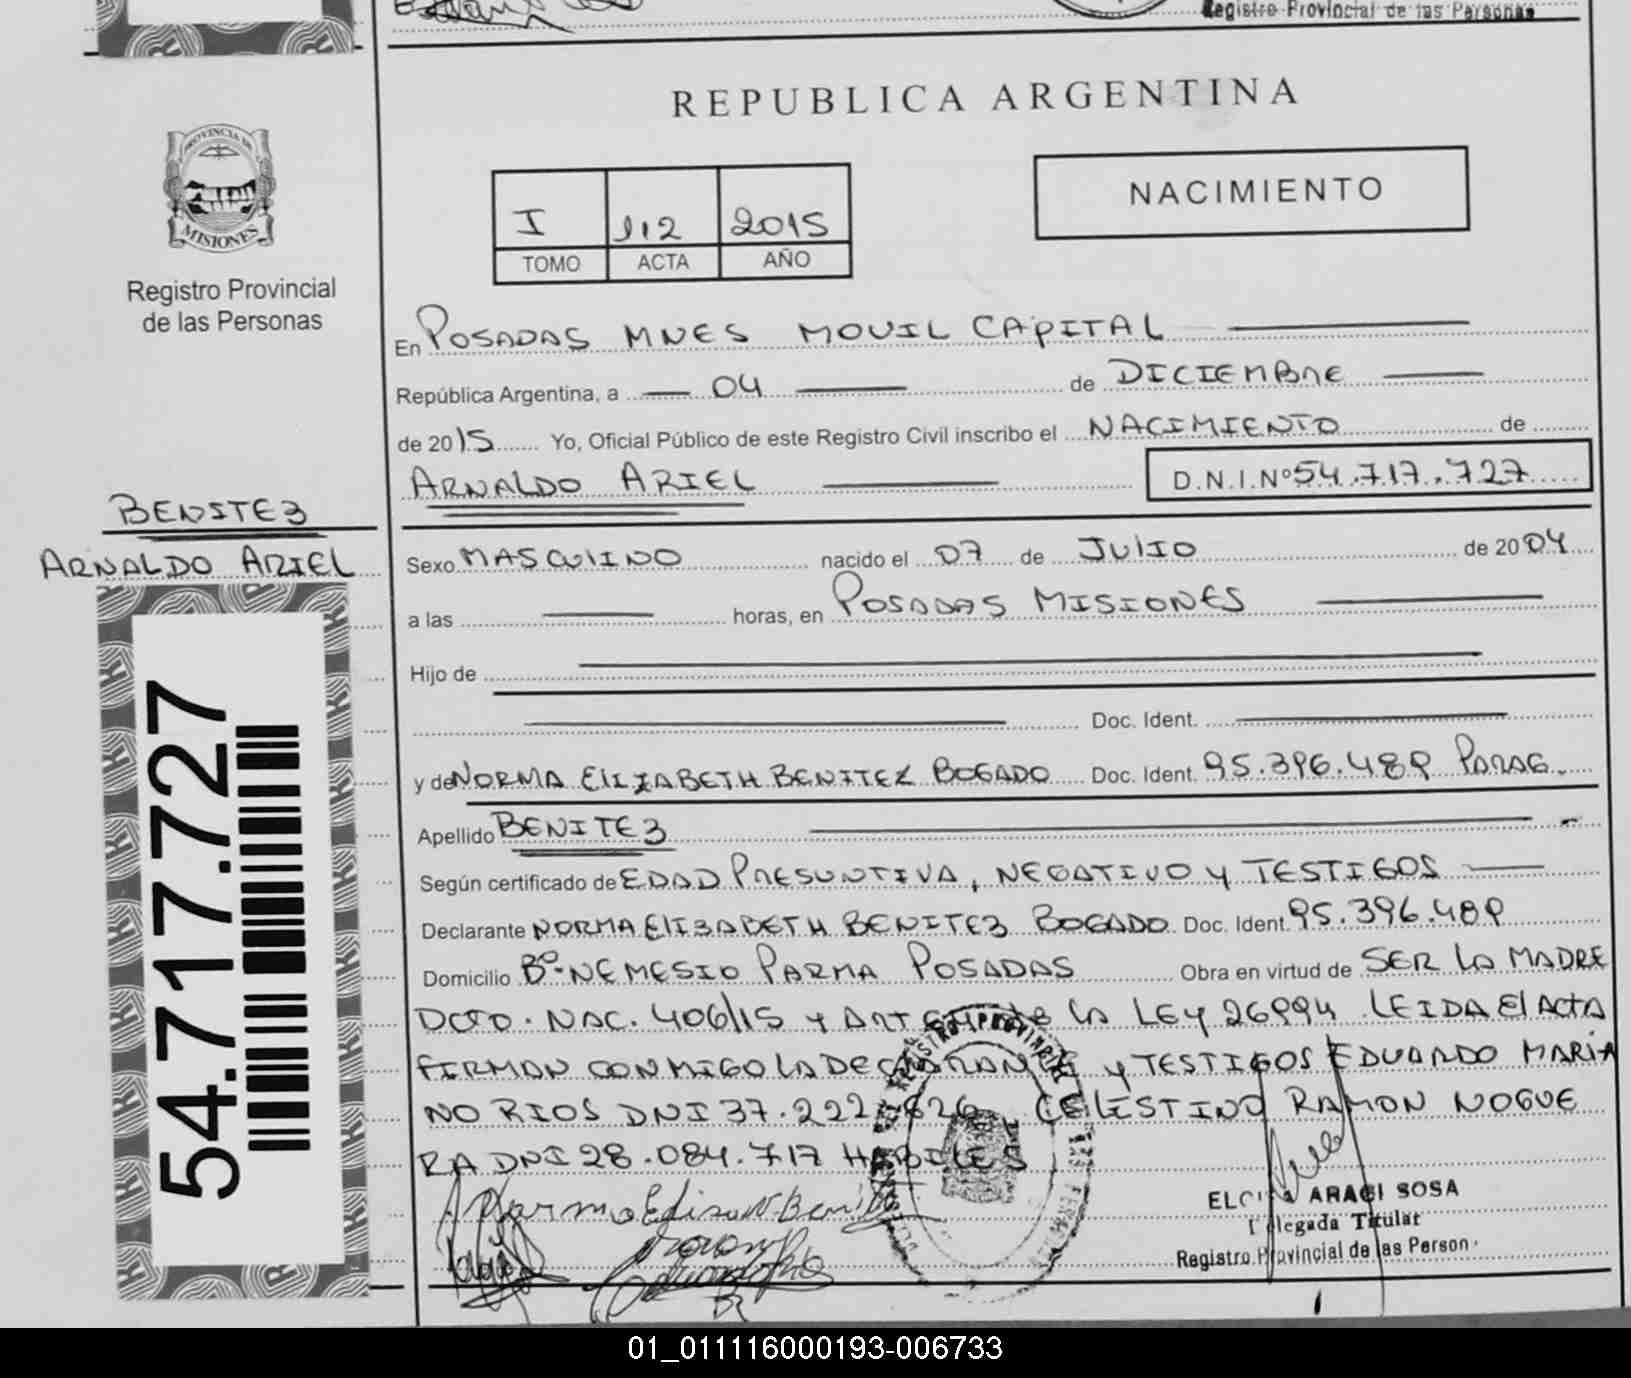 Registro Provincial de las Personas
REPUBLICA ARGENTINA
PROVINCIA DE
MISIONES
Registro Provincial
de las Personas
I 112 2015
TOMO ACTA AÑO
NACIMIENTO
En POSADAS MNES MOVIL CAPITAL
República Argentina, a 04 de DICIEMBRE
de 2015 Yo, Oficial Público de este Registro Civil inscribo el NACIMIENTO de
ARNALDO ARIEL D.N.I.Nº 54.717.727
BENITEZ
ARNALDO ARIEL
54.717.727
Sexo MASCULINO nacido el 07 de JULIO de 2004
a las horas, en POSADAS MISIONES
Hijo de
Doc. Ident.
y de NORMA ELIZABETH BENITEZ BOGADO Doc. Ident. 95.396.489 PARAG.
Apellido BENITEZ
Según certificado de EDAD PRESUNTIVA, NEGATIVO Y TESTIGOS
Declarante NORMA ELIZABETH BENITEZ BOGADO Doc. Ident. 95.396.489
Domicilio Bº NEMESIO PARMA POSADAS Obra en virtud de SER LA MADRE
DCTO. NAC. 406/15 Y ART LA LEY 26994 LEIDA EL ACTA
FIRMAN CONMIGO LA DECLARANTE Y TESTIGOS EDUARDO MARIA
NO RIOS DNI 37.222.626 CELESTINO RAMON NOGUE
RA DNI 28.084.717 HABILES
ARACI SOSA
Delegada Titular
Registro Provincial de las Person
01_011116000193-006733